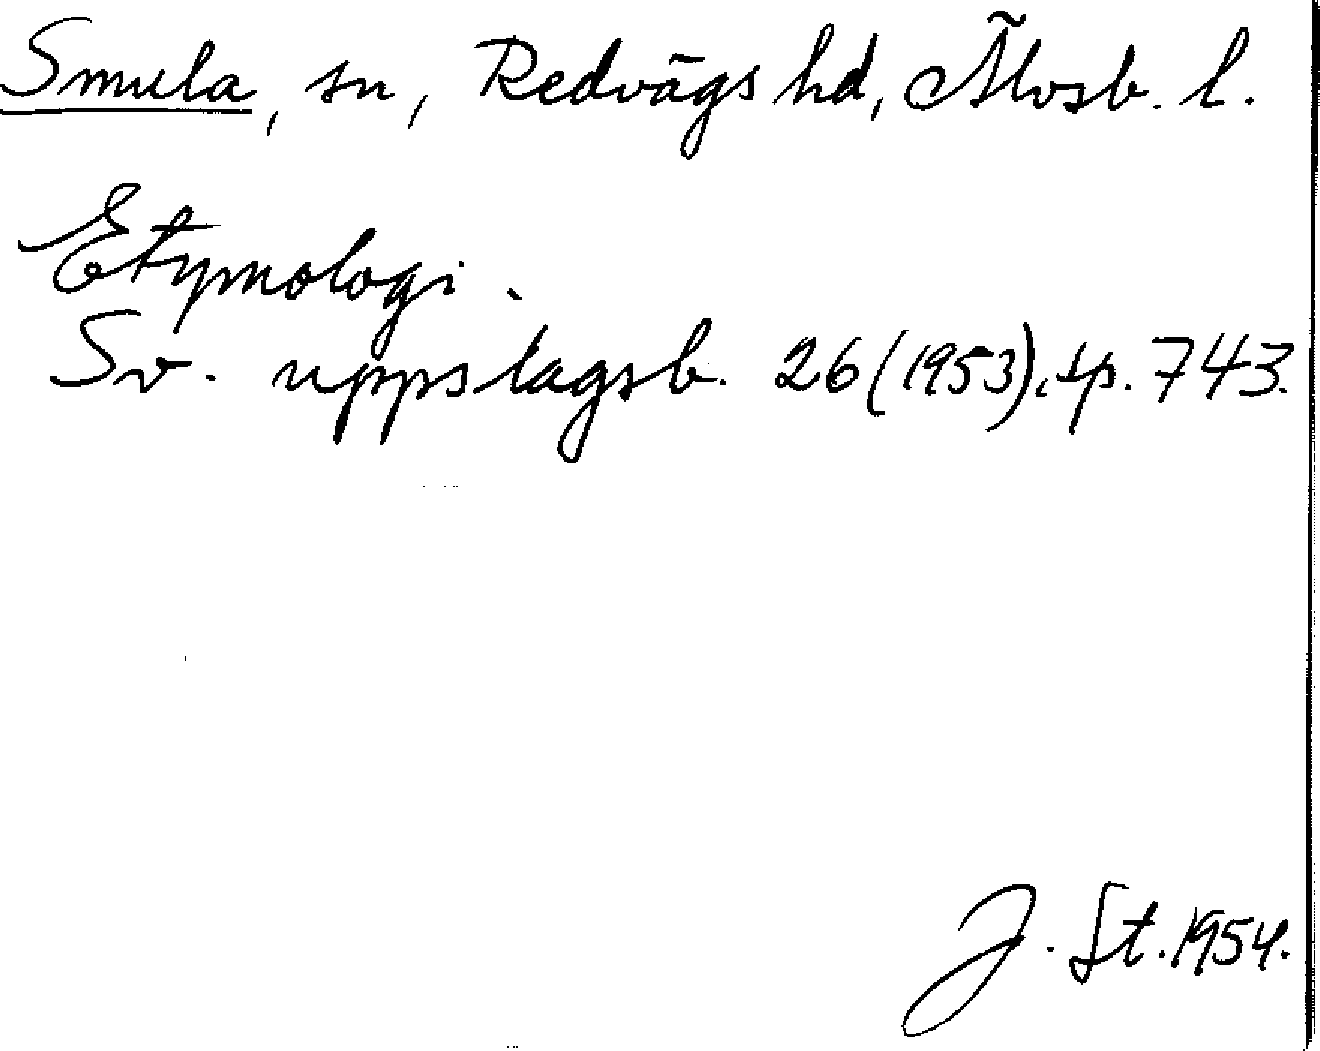 Smula, sn, Redvägs hd, Älvsb. l.
Etymologi.
Sv. uppslagsb. 26 (1953), sp. 743.
J. St. 1954.